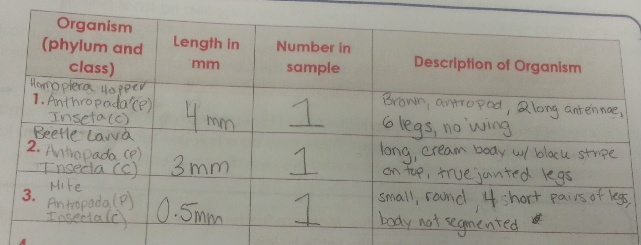 Organism
(phylum and
class)
Length in
mm
Number in
sample
Description of Organism
Homoptera Hopper
1. Anthropada (P)
Inseta (C)
4 mm
1
Brown, antropod, 2 long antennae,
6 legs, no wing
Beetle Larva
2. Anthopada (P)
Insecta (C)
3 mm
1
long, cream body w/ black stripe
on top, true jointed legs
Mite
3. Antropada (P)
Insecta (C)
0.5mm
1
small, round, 4 short pairs of legs,
body not segmented